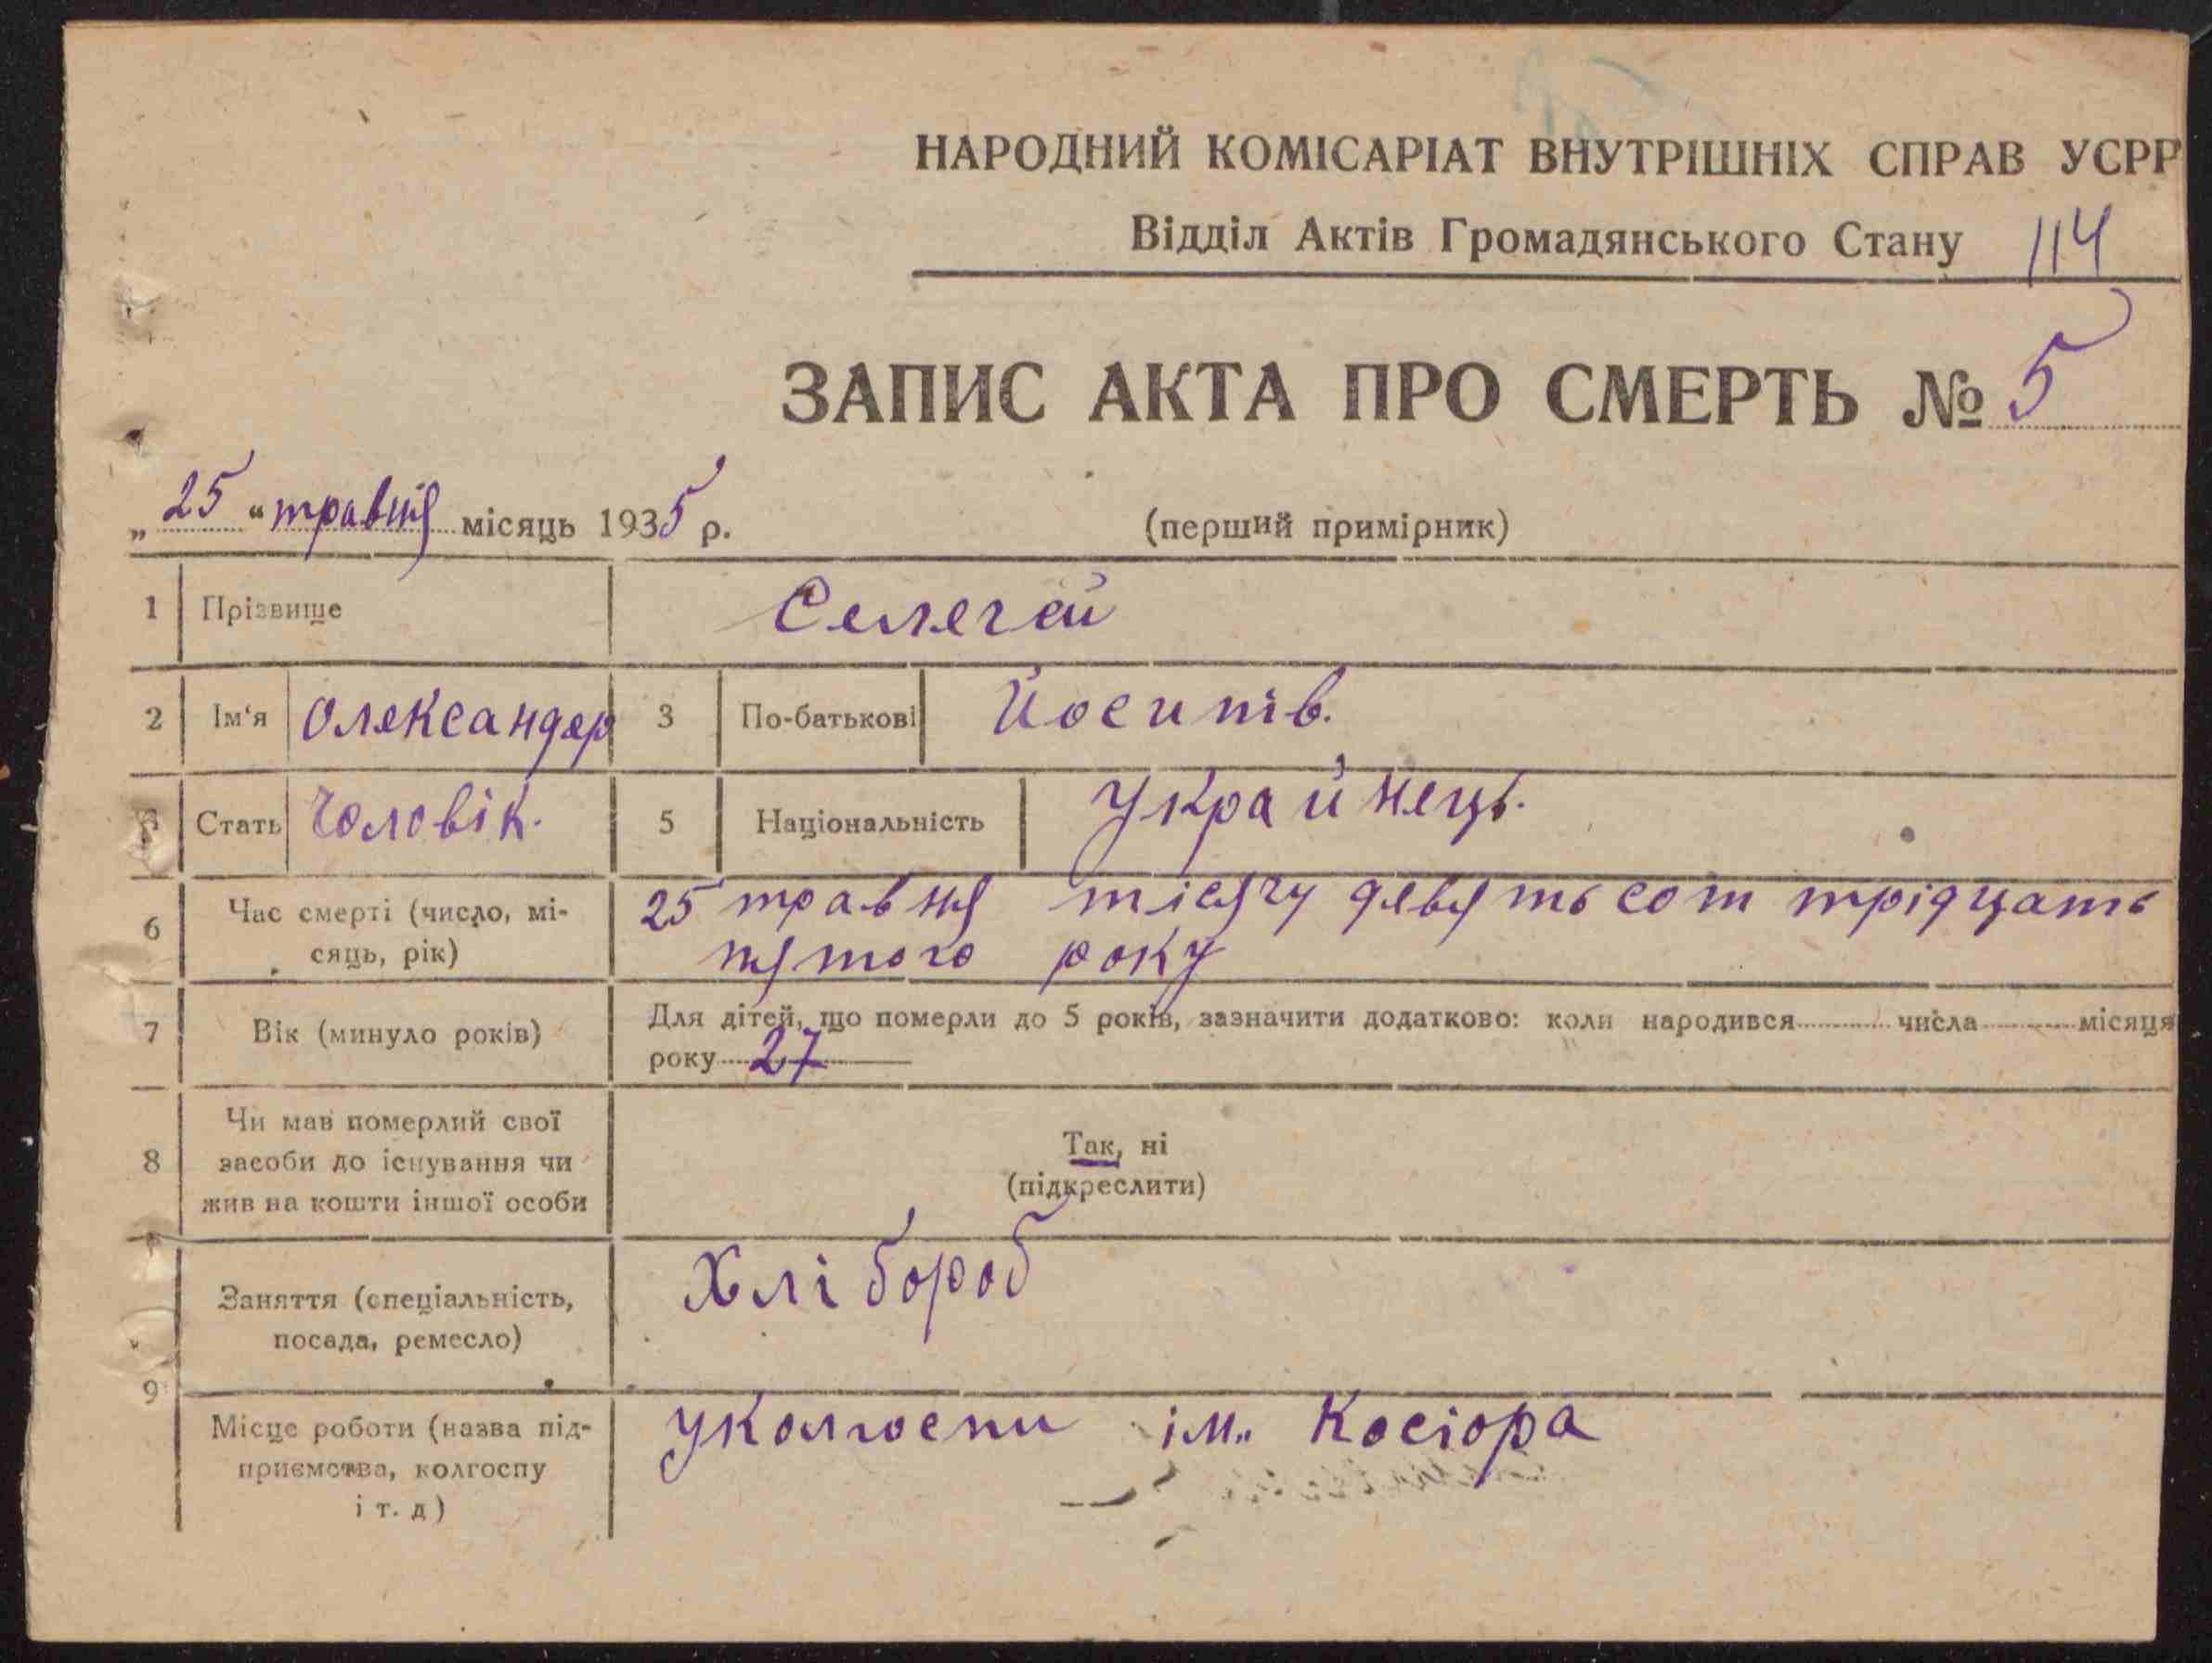 НАРОДНИЙ КОМІСАРІАТ ВНУТРІШНІХ СПРАВ УСРР
Відділ Актів Громадянського Стану 114
ЗАПИС АКТА ПРО СМЕРТЬ № 5
„25“ травня місяць 1935 р. (перший примірник)
1 Прізвище Селегей
2 Ім'я Олександер 3 По-батькові Йосипів.
Стать Чоловік. 5 Національність Украйнець.
6 Час смерті (число, мі-
сяць, рік)
25 травня тисячу девятьсот трідцать
пятого року
7 Вік (минуло років)
Для дітей, що померли до 5 років, зазначити додатково: коли народився числа місяця
року 27
8 Чи мав померлий свої
засоби до існування чи
жив на кошти іншої особи
Так, ні
(підкреслити)
9 Заняття (спеціальність,
посада, ремесло)
Хлібороб
Місце роботи (назва під-
приємства, колгоспу
і т. д)
уколгоспи ім. Косіора